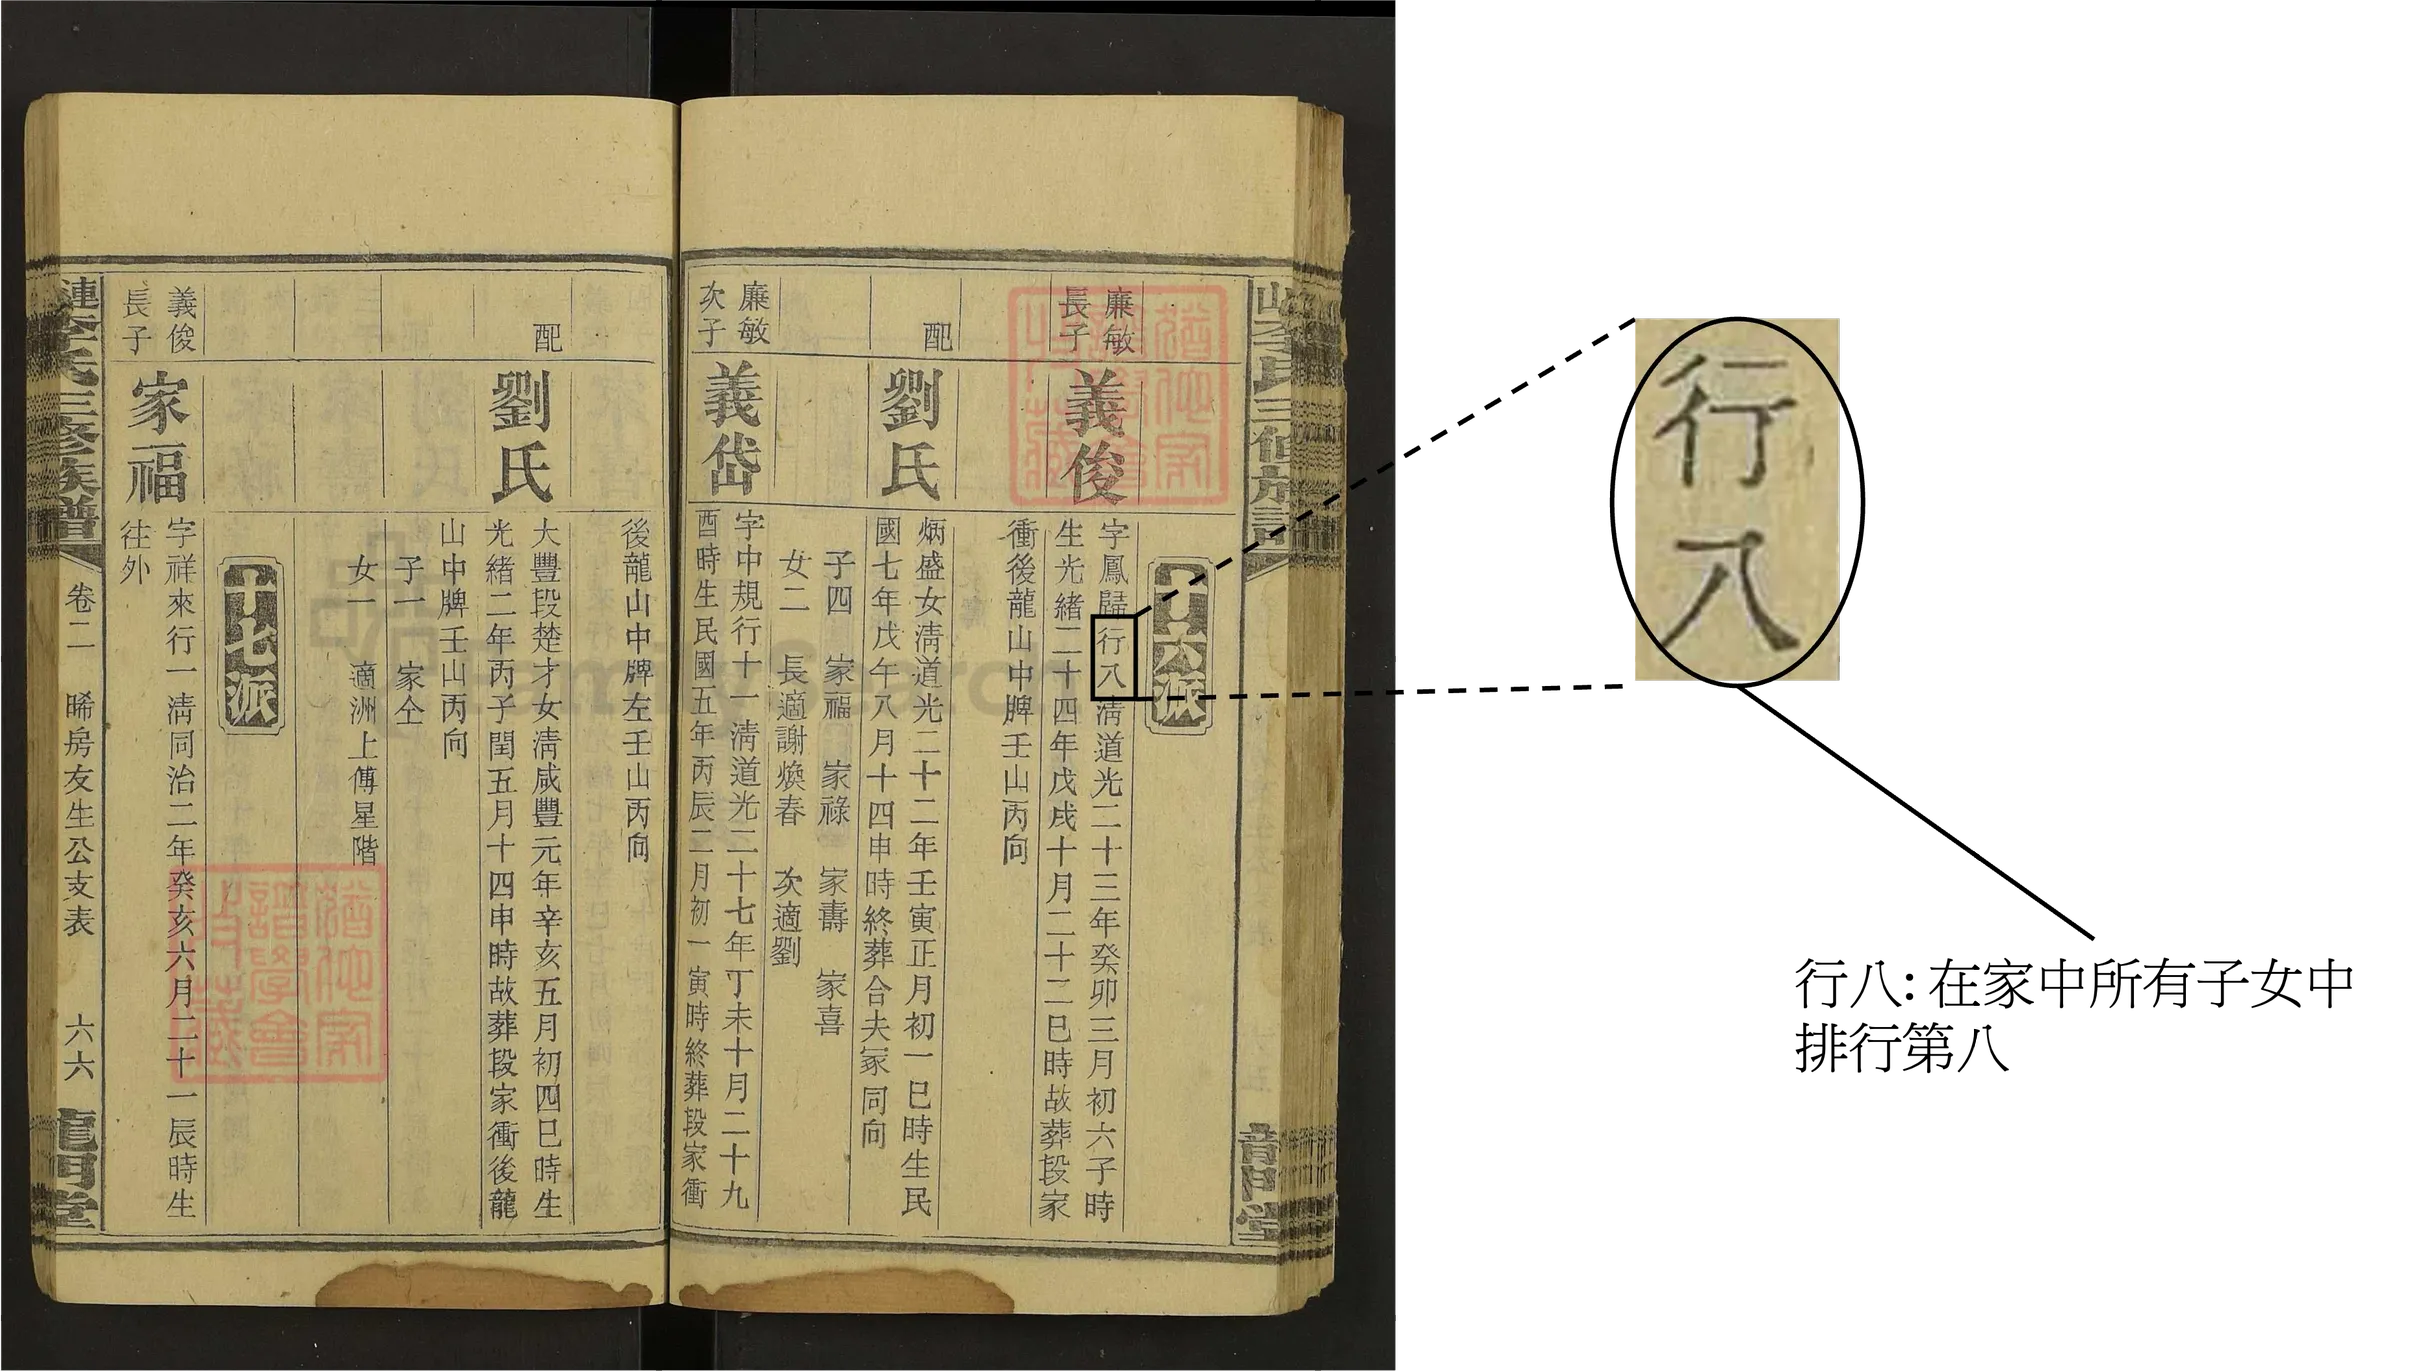 十六派
廉敏
長子
義俊
字鳳歸行八清道光二十三年癸卯三月初六子時
生光緒二十四年戊戌十月二十二巳時故葬段家
衝後龍山中牌壬山丙向
配
劉氏
炳盛女清道光二十二年壬寅正月初一巳時生民
國七年戊午八月十四申時終葬合夫冢同向
子四 家福 家祿 家壽 家喜
女二 長適謝煥春 次適劉
廉敏
次子
義岱
字中規行十一清道光二十七年丁未十月二十九
酉時生民國五年丙辰二月初一寅時終葬段家衝
後龍山中牌左壬山丙向
配
劉氏
大豐段楚才女清咸豐元年辛亥五月初四巳時生
光緒二年丙子閏五月十四申時故葬段家衝後龍
山中牌壬山丙向
子一 家仝
女一 適洲上傅星階
十七派
義俊
長子
家福
字祥來行一清同治二年癸亥六月二十一辰時生
往外
漣李氏三修族譜
卷二 晞房友生公支表 六六
龍門堂
FamilySearch
行八
行八: 在家中所有子女中
排行第八